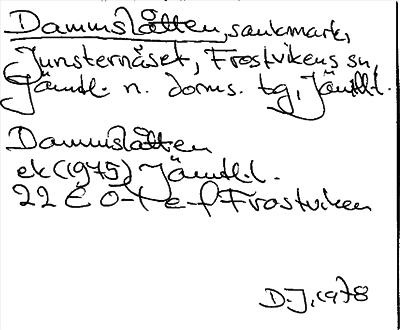 Dammslåtten, sankmark,
Junsternäset, Frostvikens sn,
Jämtl. n. doms. tg, Jämtl.l.
Dammslåtten
ek (1975) Jämtl.l.
22 E 0-1 e-f Frostviken
D.J. 1978